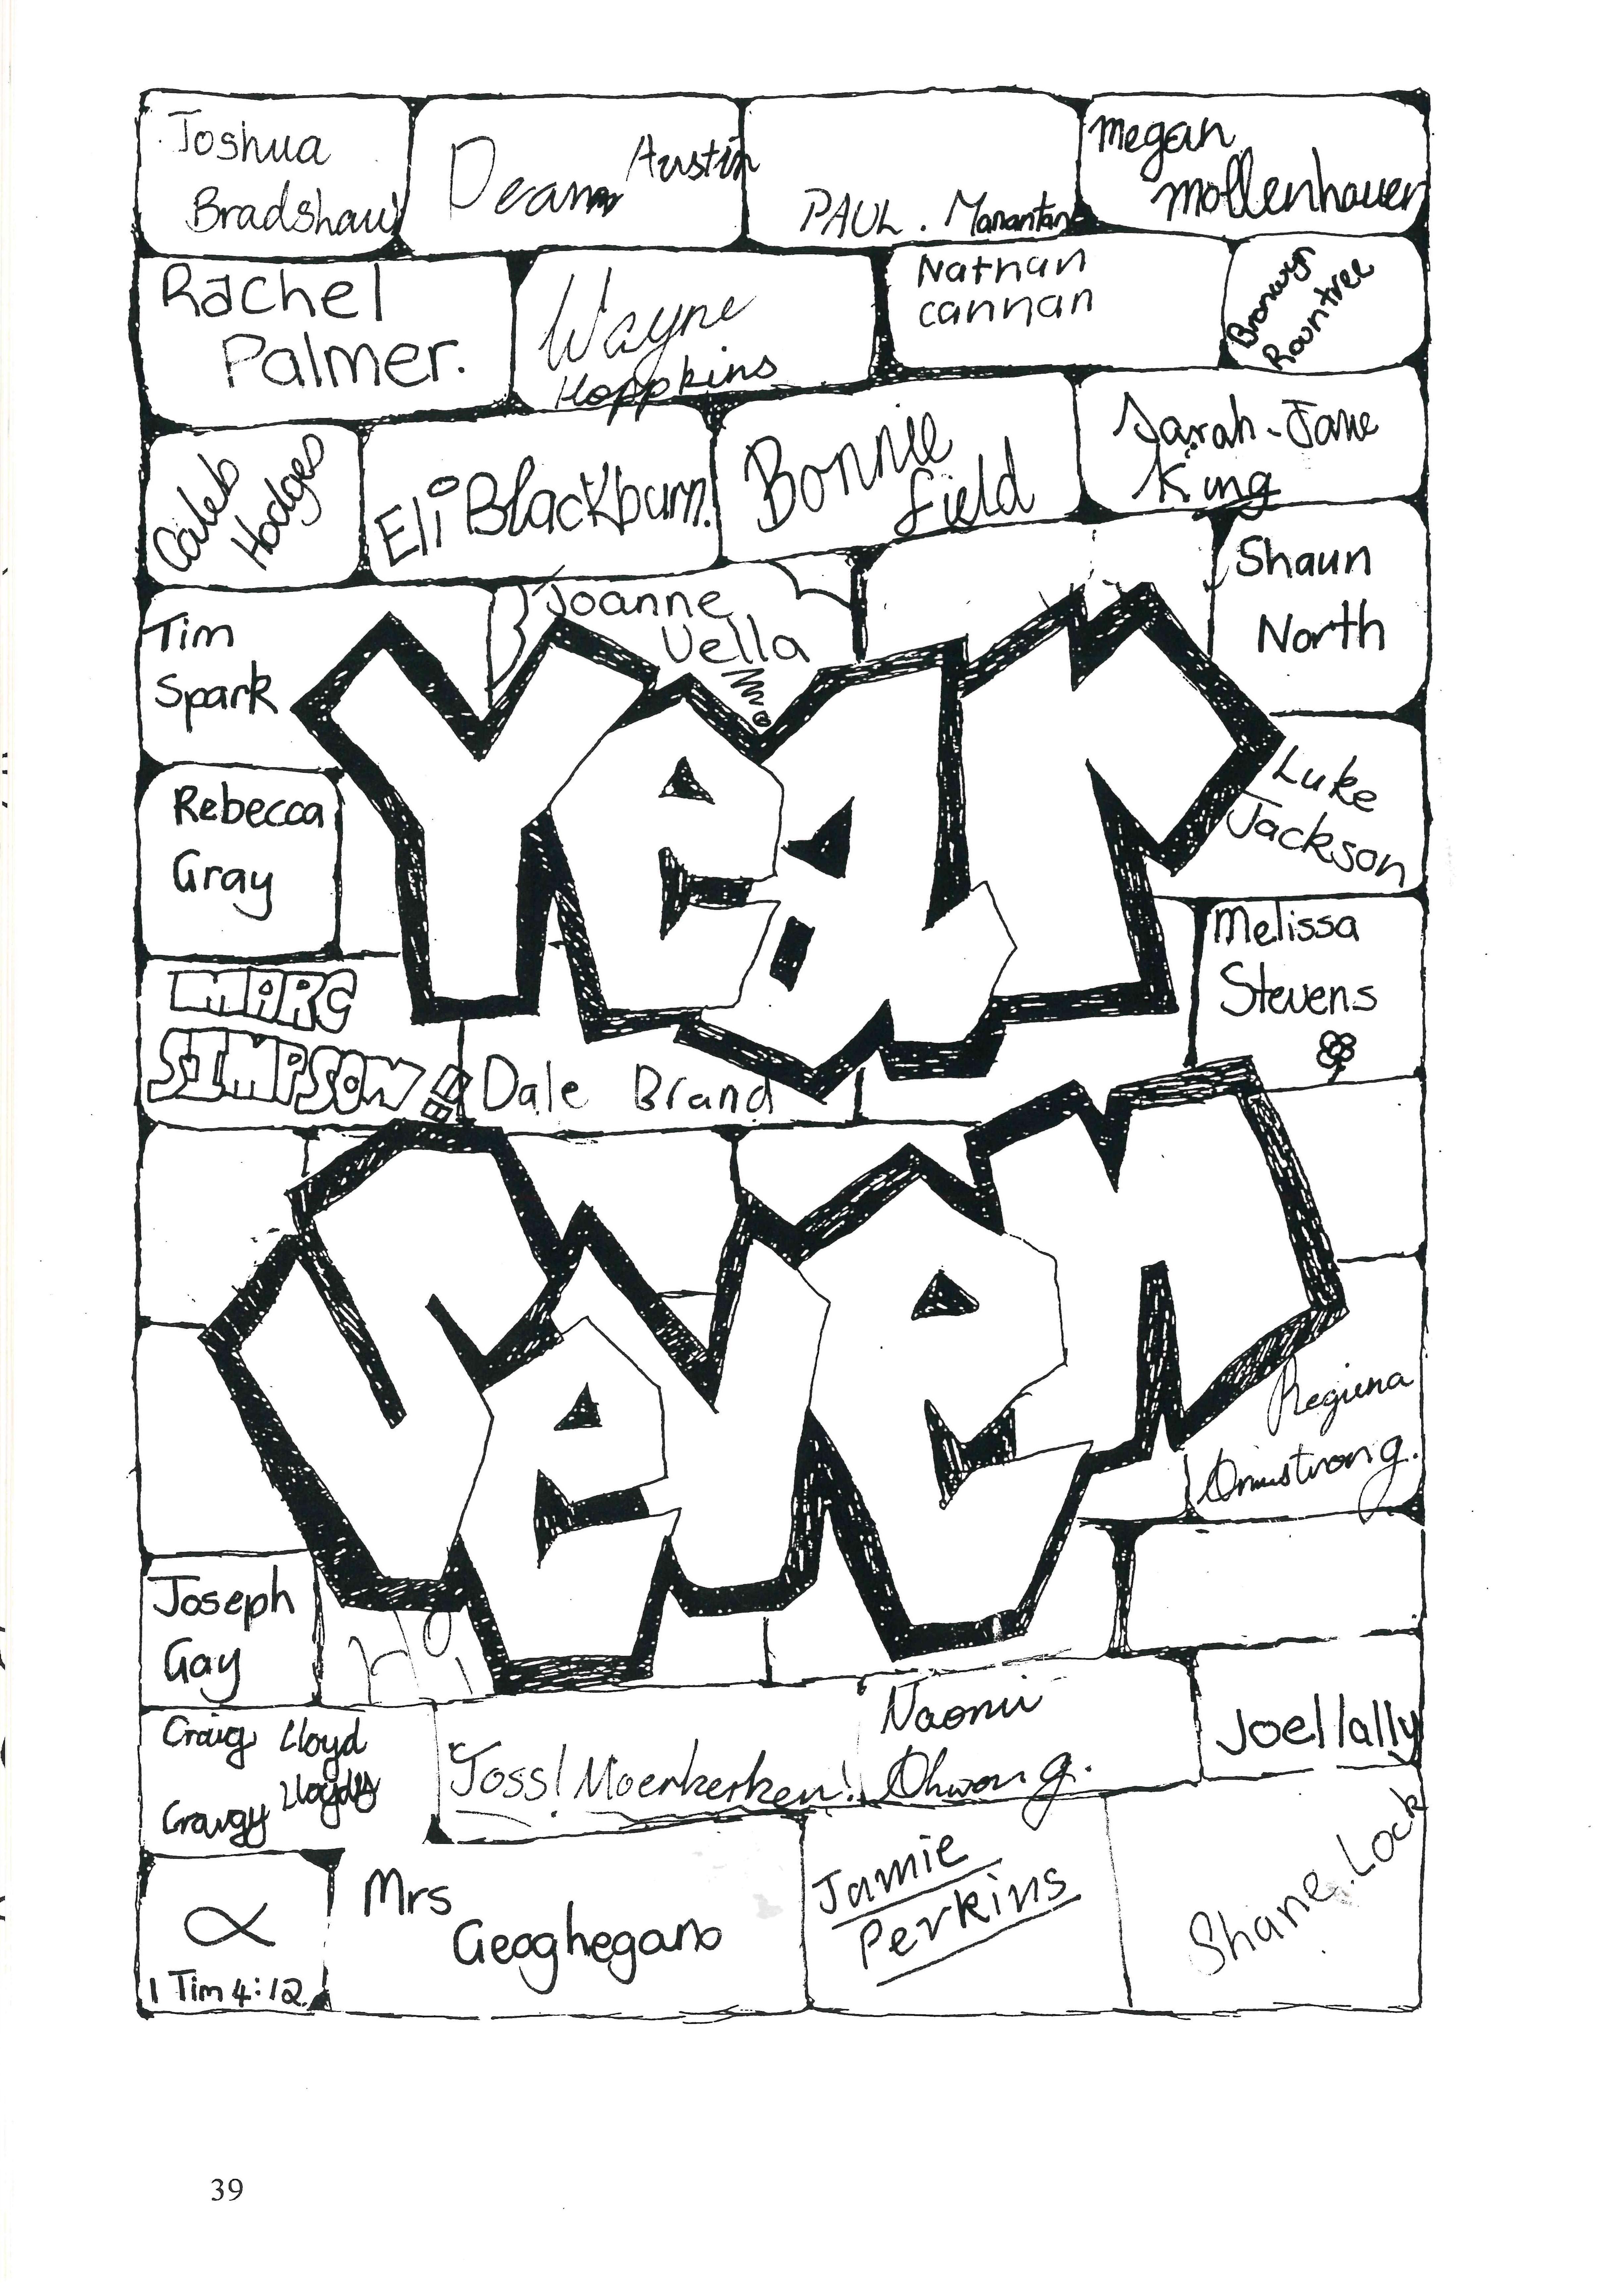 Joshua
Bradshaw
Dean Austin
PAUL. Manantan
Megan
Mollenhauer
Rachel
Palmer.
Wayne
Hoppkins
Nathan
cannan
Bronwyn
Rowntree
Caleb
Hodges
Eli Blackburn.
Bonnie
field
Sarah-Jane
King
Tim
Spark
Joanne
Vella
Shaun
North
Year
Rebecca
Gray
Luke
Jackson
MARC
SIMPSON!!
Dale Brand
Melissa
Stevens
Seven
Regiena
Armstrong.
Joseph
Gay
Hi
Craig Lloyd
Craigy Lloydy
Joss! Moerkerken!
Naomi
Ohwong.
Joel lally
1 Tim 4:12.
Mrs
Geoghegan
Jamie
Perkins
Shane.Lock
39